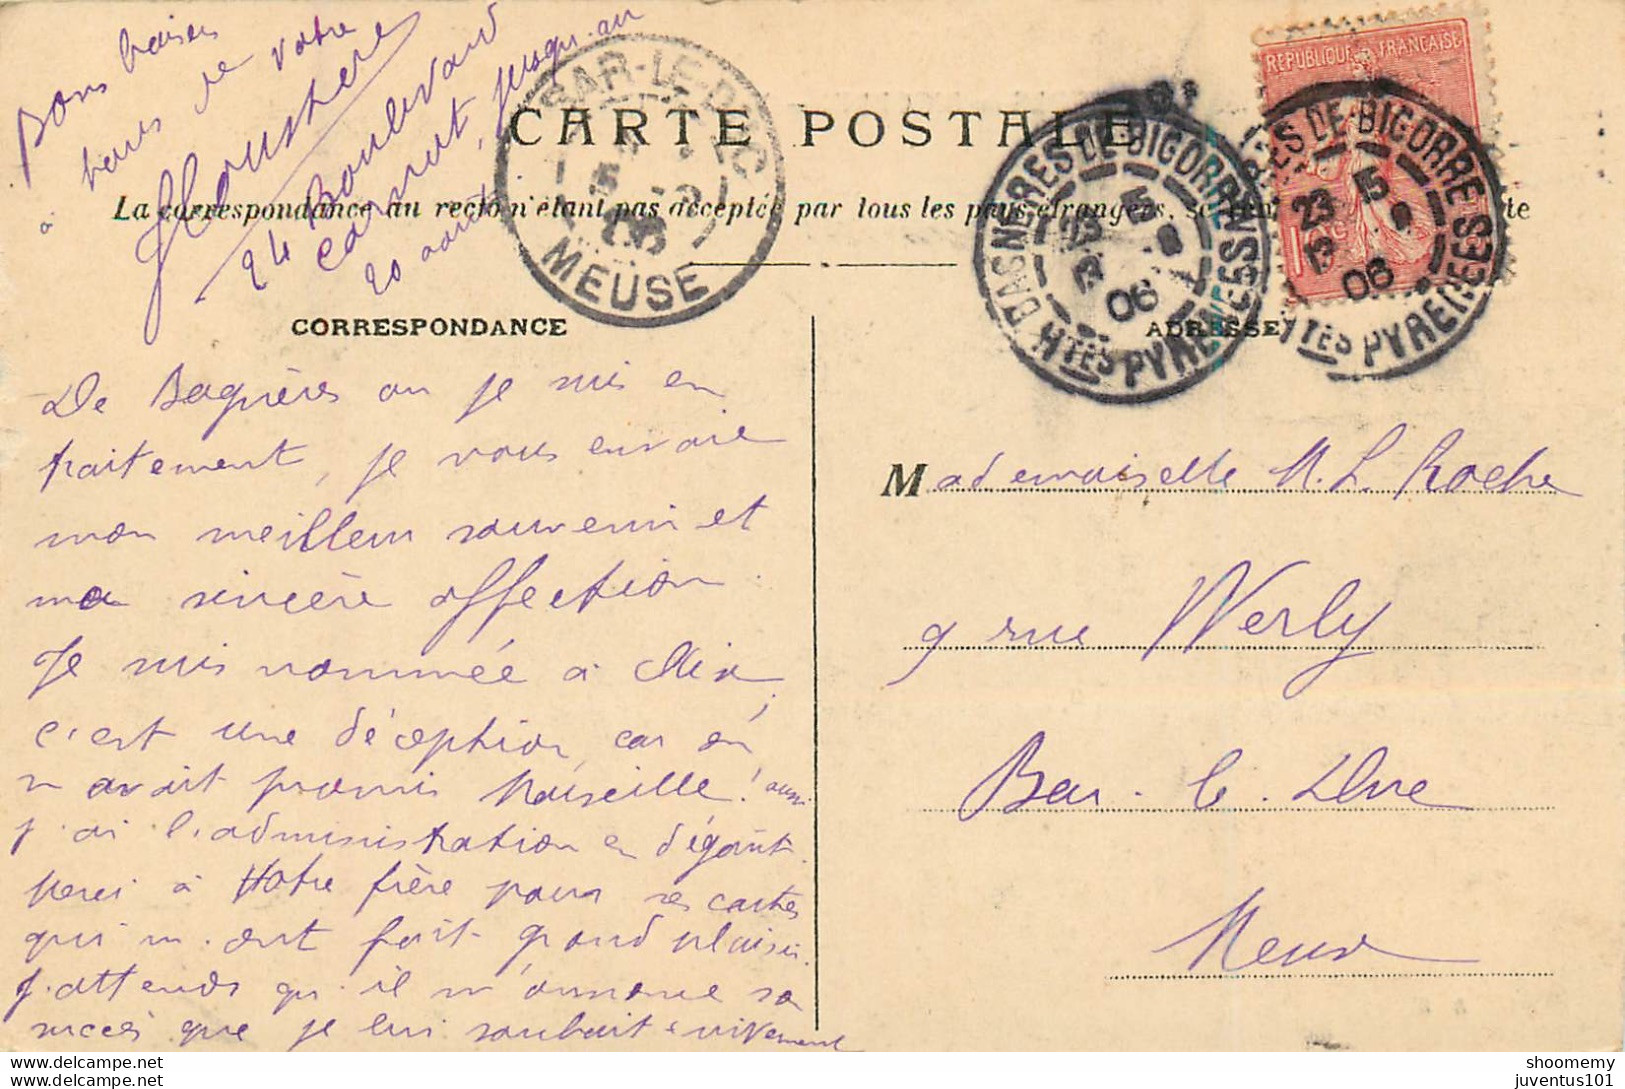 Bons baisers
à tous de votre
24 Boulevard
Carnot, jusqu'au
20 août.
BAR-LE-DUC
MEUSE
CARTE POSTALE
La correspondance au recto n'étant pas acceptée par tous les pays étrangers, se
te
REPUBLIQUE FRANÇAISE
10c
BAGNERES-DE-BIGORRE
23 15
13 8
06
HTES PYRENEES
BAGNERES-DE-BIGORRE
23 15
13 8
06
HTES PYRENEES
CORRESPONDANCE
ADRESSE
De Bagnères où je suis en
traitement, je vous envoie
mon meilleur souvenir et
ma sincère affection.
Je suis nommée à Aix,
c'est une déception car on
m'avait promis Marseille! aussi
j'ai l'administration en dégoût.
Merci à Votre frère pour ses cartes
qui m'ont fait grand plaisir.
J'attends qu'il m'annonce son
succès que je lui souhaite vivement
Mademoiselle M. L. Roche
9 rue Werly
Bar-le-Duc
Meuse
shoomemy
juventus101